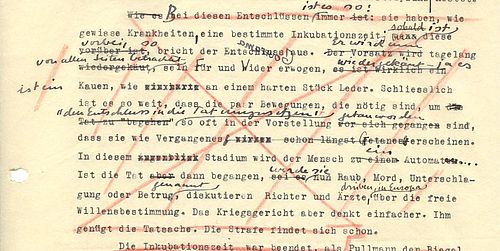 ist es so!
Wie es Bei diesen Entschlüssen immer ist: sie haben, wie
gewisse Krankheiten, eine bestimmte Inkubationszeit; wenn diese
sobald ist
vorüber ist, bricht der Entschluss aus. Der Vorsatz wird tagelang
vorbei so Er wird nun
von allen Seiten betrachtet
wiedergekäut, sein Für und Wider erwogen, es ist wirklich ein
wiedergekäut - ja es
ist ein Kauen, wie an einem harten Stück Leder. Schliesslich
ist es so weit, dass die paar Bewegungen, die nötig sind, um
"den Entschluss in die Tat umzusetzen" getan worden
Tat zu "begehen", so oft in der Vorstellung vor sich gegangen sind,
dass sie wie Vergangenes schon längst Getanes erscheinen.
In diesem Stadium wird der Mensch zu einem Automat....
ein
Ist die Tat aber dann begangen, sei es nun Raub, Mord, Unterschla-
wurde sie
gung oder Betrug, diskutieren Richter und Ärzte, über die freie
genannt drüben, in Europa
Willensbestimmung. Das Kriegsgericht aber denkt einfacher. Ihm
genügt die Tatsache. Die Strafe findet sich schon.
Die Inkubationszeit war beendet, als Pullmann den Riegel